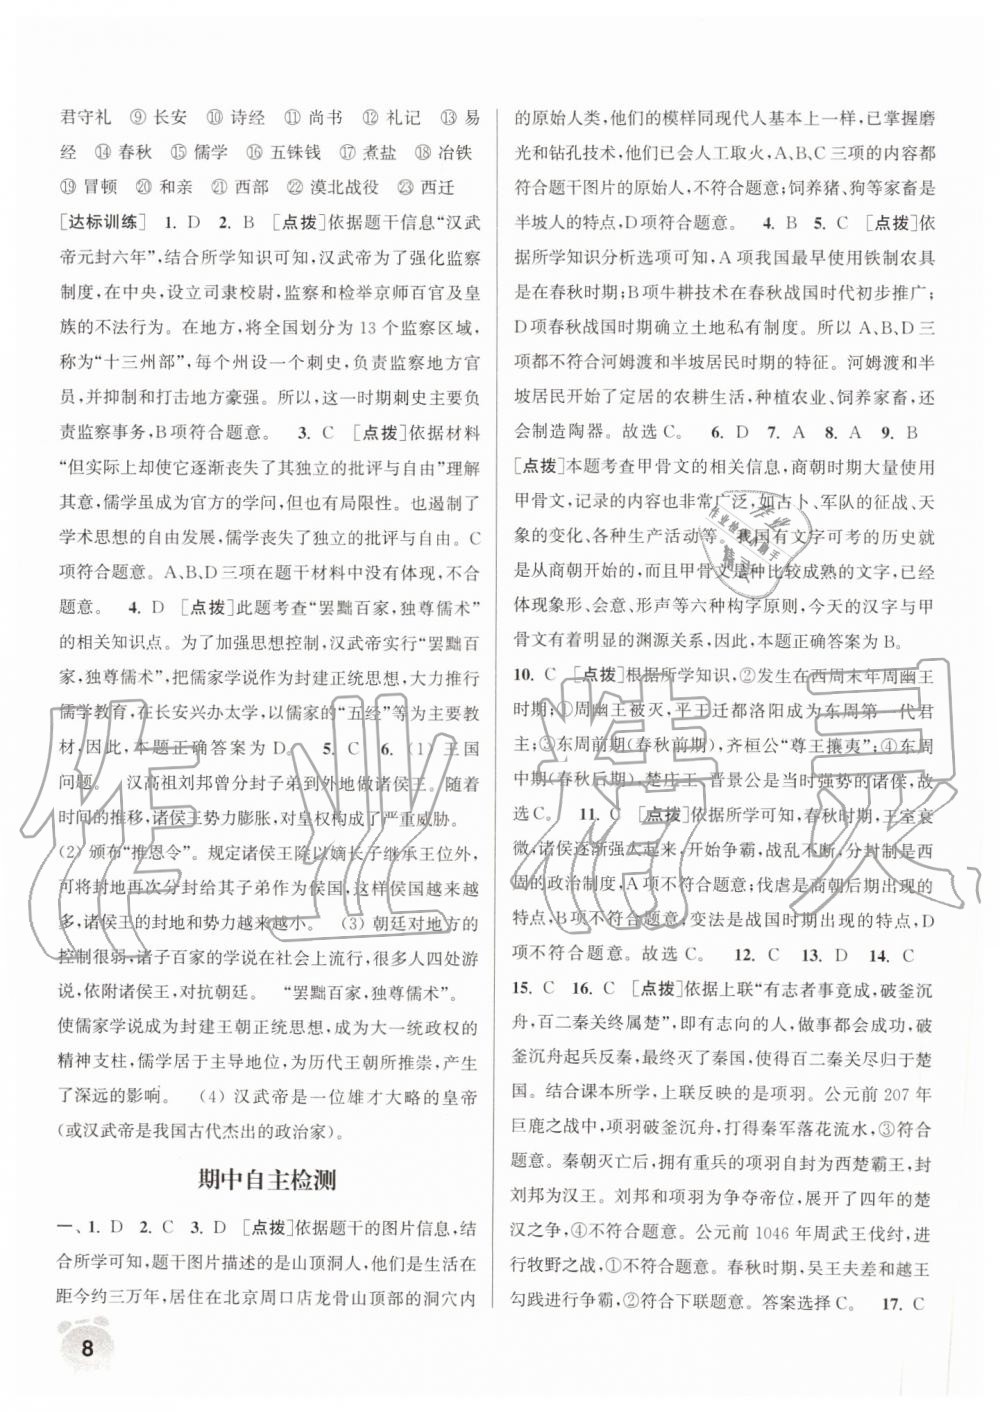 君守礼 ⑨ 长安 ⑩ 诗经 ⑪ 尚书 ⑫ 礼记 ⑬ 易
经 ⑭ 春秋 ⑮ 儒学 ⑯ 五铢钱 ⑰ 煮盐 ⑱ 冶铁
⑲ 冒顿 ⑳ 和亲 ㉑ 西部 ㉒ 漠北战役 ㉓ 西迁
[达标训练] 1. D 2. B [点拨]依据题干信息“汉武
帝元封六年”，结合所学知识可知，汉武帝为了强化监察
制度，在中央，设立司隶校尉，监察和检举京师百官及皇
族的不法行为。在地方，将全国划分为 13 个监察区域，
称为“十三州部”，每个州设一个刺史，负责监察地方官
员，并抑制和打击地方豪强。所以，这一时期刺史主要负
责监察事务，B 项符合题意。 3. C [点拨]依据材料
“但实际上却使它逐渐丧失了其独立的批评与自由”理解
其意，儒学虽成为官方的学问，但也有局限性。不利于
学术思想的自由发展，儒学丧失了独立的批评与自由。C
项符合题意。A、B、D 三项在题干材料中没有体现，不合
题意。 4. D [点拨]此题考查“罢黜百家，独尊儒术”
的相关知识点。为了加强思想控制，汉武帝实行“罢黜百
家，独尊儒术”，把儒家学说作为封建正统思想，大力推行
儒学教育，在长安兴办太学，以儒家的“五经”等为主要教
材，因此，本题正确答案为 D。 5. C 6. (1) 王国
问题。 汉高祖刘邦曾分封子弟到外地做诸侯王。随着
时间的推移，诸侯王势力膨胀，对皇权构成了严重威胁。
(2) 颁布“推恩令”。规定诸侯王除以嫡长子继承王位外，
可将封地再次分封给其子弟作为侯国，这样侯国越来越
多，诸侯王的封地和势力越来越小。 (3) 朝廷对地方的
控制很弱，诸子百家的学说在社会上流行，很多人四处游
说，依附诸侯王，对抗朝廷。 “罢黜百家，独尊儒术”。
使儒家学说成为封建王朝正统思想，成为大一统政权的
精神支柱，儒学居于主导地位，为历代王朝所推崇，产生
了深远的影响。 (4) 汉武帝是一位雄才大略的皇帝
(或汉武帝是我国古代杰出的政治家)。
期中自主检测
一、1. D 2. C 3. D [点拨]依据题干的图片信息，结
合所学可知，题干图片描述的是山顶洞人，他们是生活在
距今约三万年，居住在北京周口店龙骨山顶部的洞穴内
的原始人类，他们的模样同现代人基本上一样，已掌握磨
光和钻孔技术，他们已会人工取火，A、B、C 三项的内容都
符合题干图片的原始人，不符合题意；饲养猪、狗等家畜是
半坡人的特点，D 项符合题意。 4. B 5. C [点拨]依
据所学知识分析选项可知，A 项我国最早使用铁制农具
是在春秋时期；B 项牛耕技术在春秋战国时代初步推广；
D 项春秋战国时期确立土地私有制度。所以 A、B、D 三
项都不符合河姆渡和半坡居民时期的特征。河姆渡和半
坡居民开始了定居的农耕生活，种植农业、饲养家畜，还
会制造陶器。故选 C。 6. D 7. A 8. A 9. B
[点拨]本题考查甲骨文的相关信息，商朝时期大量使用
甲骨文，记录的内容也非常广泛，如占卜、军队的征战、天
象的观察、各种生产活动等。我国有文字可考的历史就
是从商朝开始的，而且甲骨文是种比较成熟的文字，已经
体现象形、会意、形声等六种构字原则，今天的汉字与甲
骨文有着明显的渊源关系，因此，本题正确答案为 B。
10. C [点拨]根据所学知识，②发生在西周末年周幽王
时期；①周幽王被灭，平王迁都洛阳成为东周第一代君
主；③东周前期(春秋前期)，齐桓公“尊王攘夷”；④东周
中期(春秋后期)，楚庄王、晋景公是当时强势的诸侯，故
选 C。 11. C [点拨]依据所学可知，春秋时期，王室衰
微，诸侯国逐渐强大起来，开始争霸，战乱不断，分封制是西
周的政治制度，A 项不符合题意；伐虐是商朝后期出现的
特点，B 项不符合题意，变法是战国时期出现的特点，D
项不符合题意。故选 C。 12. C 13. D 14. C
15. C 16. C [点拨]依据上联“有志者事竟成，破釜沉
舟，百二秦关终属楚”，即有志向的人，做事都会成功，破
釜沉舟起兵反秦，最终灭了秦国，使得百二秦关尽归于楚
国。结合课本所学，上联反映的是项羽。公元前 207 年
巨鹿之战中，项羽破釜沉舟，打得秦军落花流水，③符合
题意。秦朝灭亡后，拥有重兵的项羽自称西楚霸王，封
刘邦为汉王。刘邦和项羽为争夺帝位，展开了四年的楚
汉之争，④不符合题意。公元前 1046 年周武王伐纣，进
行牧野之战，①不符合题意。春秋时期，吴王夫差和越王
勾践进行争霸，②符合下联题意。答案选择 C。 17. C
8
作业精灵